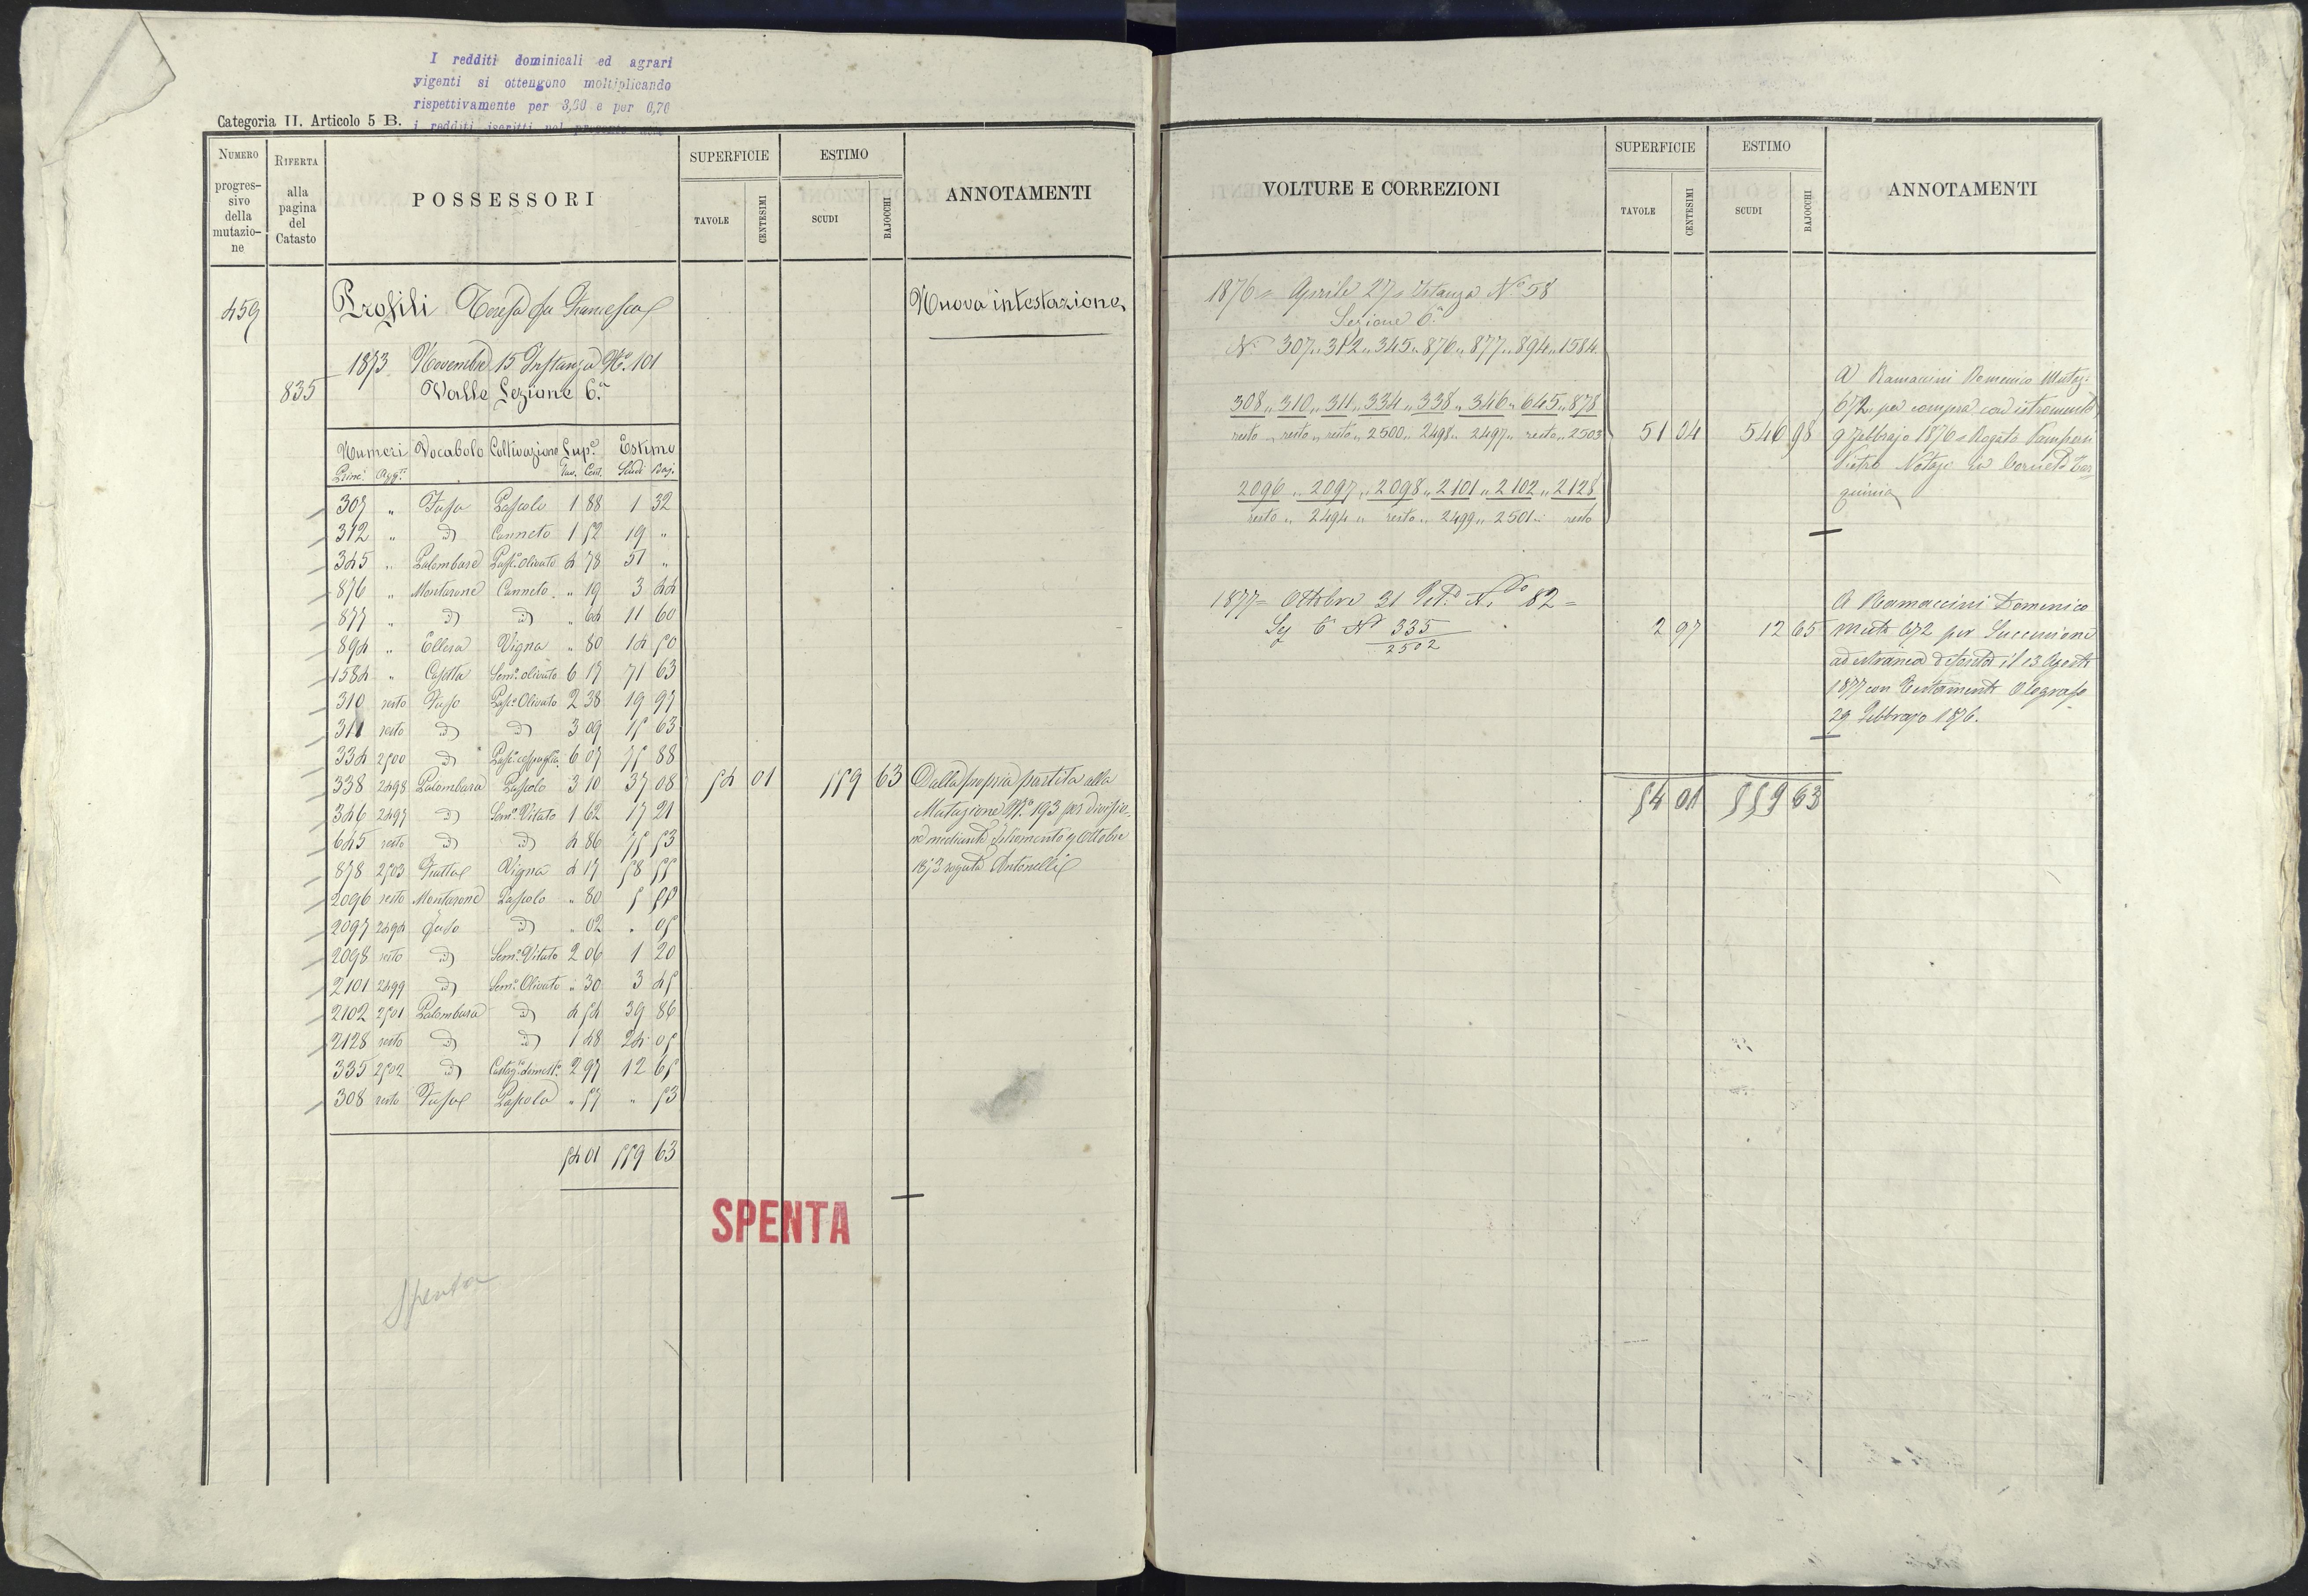 I redditi dominicali ed agrari
vigenti si ottengono moltiplicando
rispettivamente per 3,60 e per 0,70
i redditi iscritti nel presente
Categoria II. Articolo 5 B.
NUMERO progressivo della mutazione
RIFERTA alla pagina del Catasto
POSSESSORI
SUPERFICIE
TAVOLE CENTESIMI
ESTIMO
SCUDI BAJOCCHI
ANNOTAMENTI
459 Profili Teresa fu Francesco Nuova intestazione
1873 Novembre 15 Instanza N.º 101
835 Valle Sezione 6.ª
Numeri Vocabolo Coltivazione Sup.e Estimo
Princ. Agg.ti Tav. Cent. Scudi Baj.
307 " Fuso Pascolo 1 88 1 32
312 " D Canneto 1 52 19 "
345 " Palombara Pasc. olivato 4 78 51 "
876 " Montarone Canneto " 19 3 44
877 " D D " 64 11 60
894 " Ellera Vigna " 80 14 50
1584 " Casetta Sem.º olivato 6 17 71 63
310 resto Fuso Pasc.º Olivato 2 38 19 97
311 resto D D 3 09 15 63
334 2500 D 6 07 75 88
338 2498 Palombara Pascolo 3 10 37 08
346 2497 D Sem.º Vitato 1 62 17 21
645 resto D D 4 86 75 53
878 2503 Vigna 4 17 58 55
2096 resto Montarone Pascolo " 80 5
2097 2494 Fuso D " 02 " 05
2098 resto D Sem.º Vitato 2 06 1 20
2101 2499 D Sem.º Olivato " 30 3 45
2102 2501 Palombara D 4 54 39 86
2128 resto D D 1 48 24 05
335 2502 D Castag.to domest.º 2 97 12 65
308 resto Fuso Pascolo " 57 " 53
54 01 559 63
54 01 559 63
Dalla propria partita alla
Mutazione N.º 193 per divisio-
ne mediante istromento 9 Ottobre
1873 rogato Antonelli
SPENTA
Spenta
VOLTURE E CORREZIONI
SUPERFICIE
TAVOLE CENTESIMI
ESTIMO
SCUDI BAJOCCHI
ANNOTAMENTI
1876 = Aprile 27 = Istanza N.º 58
Sezione 6.ª
N.i 307 " 312 " 345 " 876 " 877 " 894 " 1584
308 " 310 " 311 " 334 " 338 " 346 " 645 " 878
resto " resto " resto " 2500 " 2498 " 2497 " resto " 2503
2096 " 2097 " 2098 " 2101 " 2102 " 2128
resto " 2494 " resto " 2499 " 2501 " resto
51 04 546 98
A Ramaccini Domenico Mutaz.
672 per compra con istromento
9 Febbrajo 1876 = Rogato
Pietro Notajo in Corneto Tar
quinia
1877 = Ottobre 31 Pet. N.º 82 =
Sez 6ª Nº 335
2502
2 97 12 65
A Ramaccini Domenico
Mut.e 672 per Successione
ad estranea defonta il 13 Agosto
1877 con Testamento Olografo
29 Febbrajo 1876.
54 01 559 63